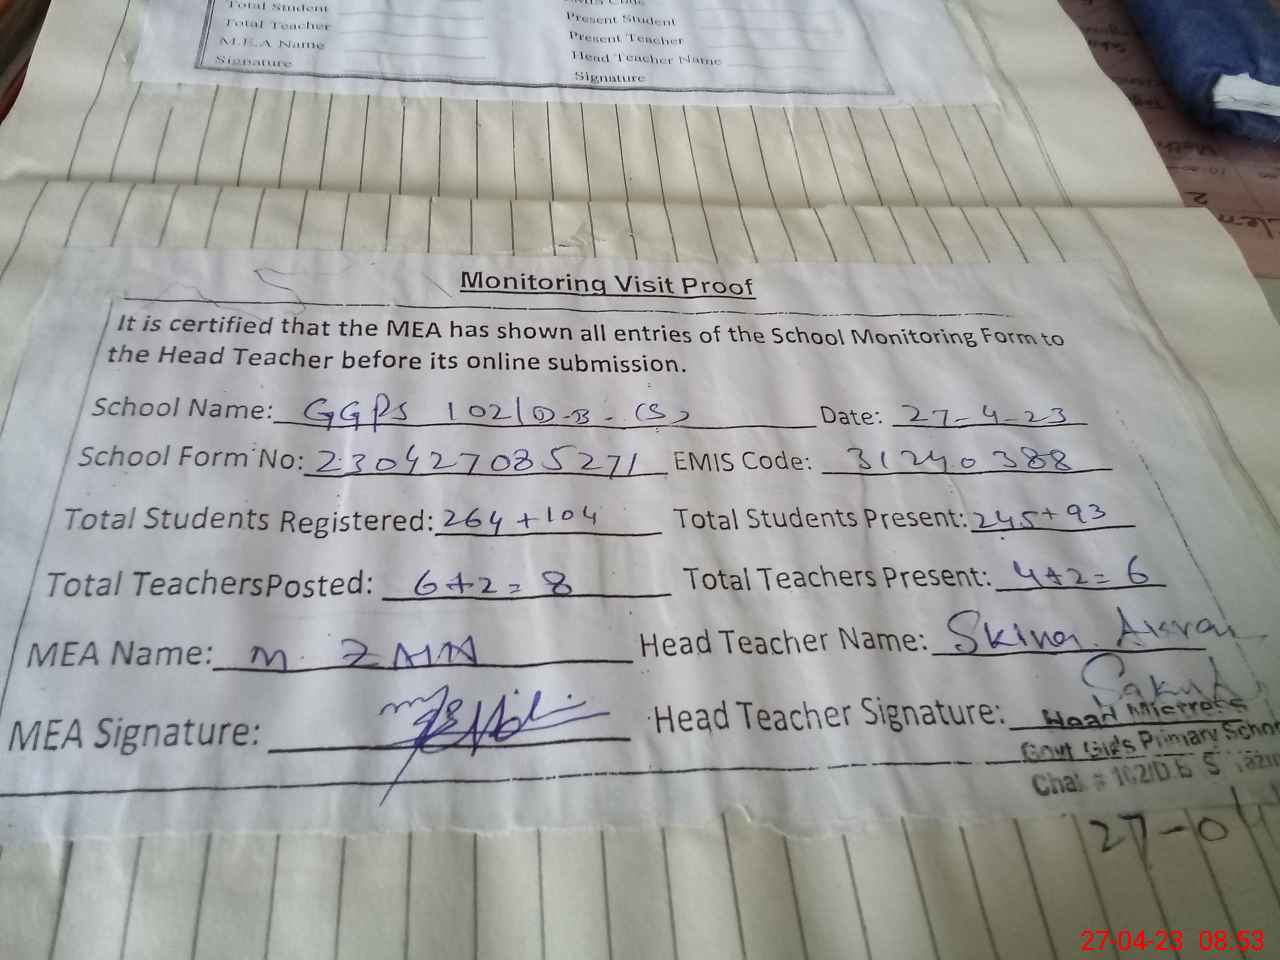 Total Student
Total Teacher
M.E.A Name
Signature
Present Student
Present Teacher
Head Teacher Name
Signature
Monitoring Visit Proof
It is certified that the MEA has shown all entries of the School Monitoring Form to
the Head Teacher before its online submission.
School Name: GGPS 102/D.B-(S) Date: 27-4-23
School Form No: 230427085271 EMIS Code: 31240388
Total Students Registered: 264+104 Total Students Present: 245+93
Total TeachersPosted: 6+2=8 Total Teachers Present: 4+2=6
MEA Name: M. Head Teacher Name:
MEA Signature: Head Teacher Signature:
Head Mistress
Govt Girls Primary School
27-04
27-04-23 08:53